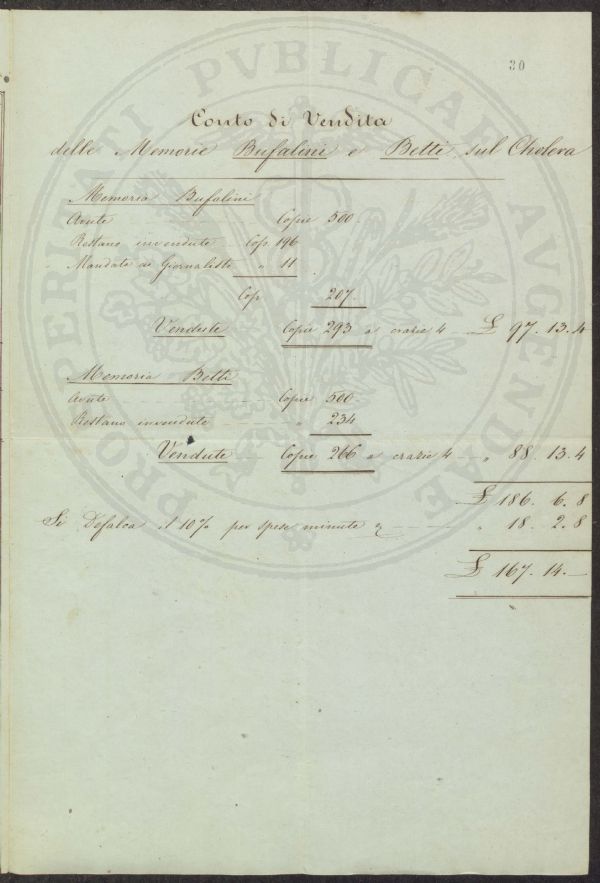 PROSPERITATI PVBLICAE AVGENDAE
30
Conto di Vendita
delle Memorie Bufalini e Betti sul Cholera
Memoria Bufalini
Avute Copie 500.
Restano invendute Cop. 196
Mandate ai Giornalisti " 11
Cop 207.
Vendute Copie 293 a crazie 4 £ 97. 13. 4
Memoria Betti
Avute Copie 500
Restano invendute " 234
Vendute Copie 266 a crazie 4 " 88. 13. 4
£ 186. 6. 8
Si Defalca il 10% per spese minute " 18. 2. 8
£ 167. 14. —